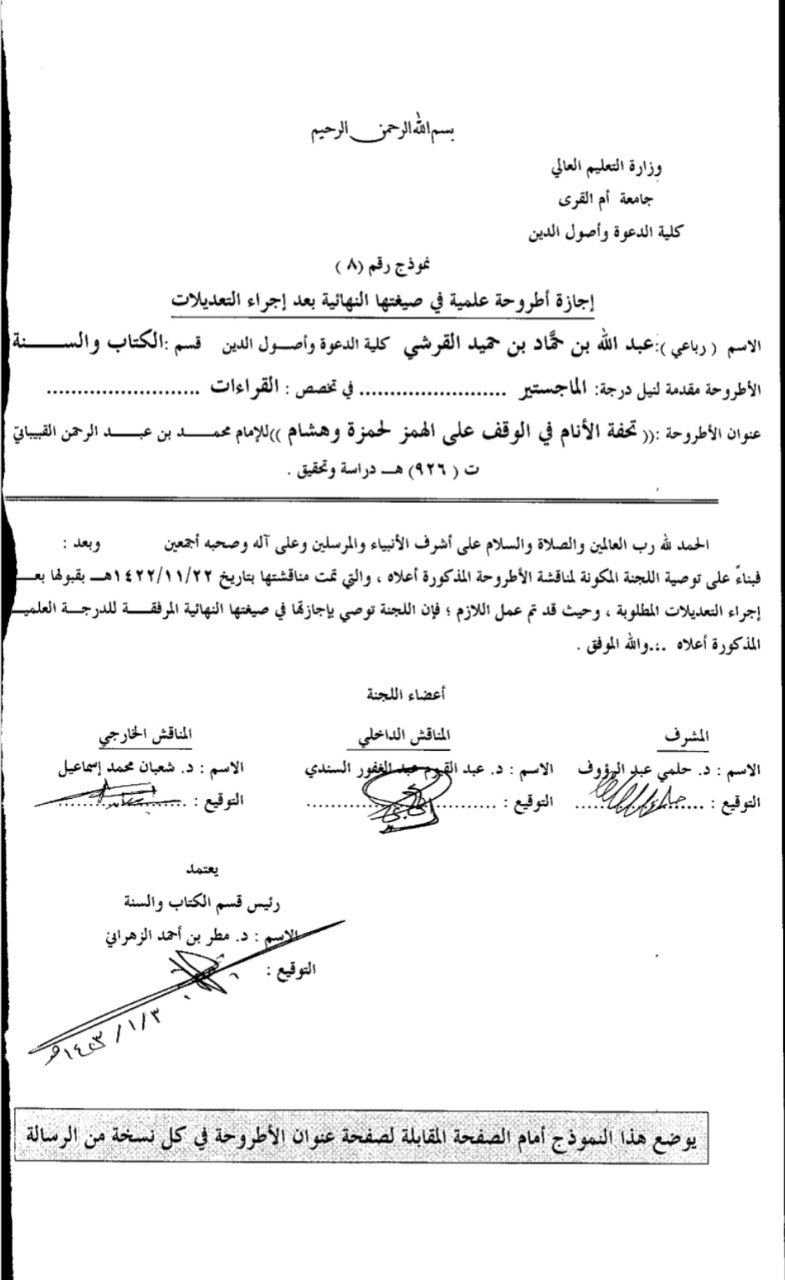 بسم الله الرحمن الرحيم
وزارة التعليم العالي
جامعة أم القرى
كلية الدعوة وأصول الدين
نموذج رقم (٨)
إجازة أطروحة علمية في صيغتها النهائية بعد إجراء التعديلات
الاسم ( رباعي ): عبد الله بن حمَّاد بن حميد القرشي كلية الدعوة وأصول الدين قسم : الكتاب والسنة
الأطروحة مقدمة لنيل درجة: الماجستير ........................ في تخصص : القراءات .........................
عنوان الأطروحة :(( تحفة الأنام في الوقف على الهمز لحمزة وهشام ))للإمام محمد بن عبد الرحمن القبيباتي
ت ( ٩٢٦) هـ دراسة وتحقيق .
الحمد لله رب العالمين والصلاة والسلام على أشرف الأنبياء والمرسلين وعلى آله وصحبه أجمعين وبعد :
فبناءً على توصية اللجنة المكونة لمناقشة الأطروحة المذكورة أعلاه ، والتي تمت مناقشتها بتاريخ ١٤٢٢/١١/٢٢هـ بقبولها بعـ
إجراء التعديلات المطلوبة ، وحيث قد تم عمل اللازم ؛ فإن اللجنة توصي بإجازتها في صيغتها النهائية المرفقة للدرجة العلميـ
المذكورة أعلاه ...والله الموفق .
أعضاء اللجنة
المشرف المناقش الداخلي المناقش الخارجي
الاسم : د. حلمي عبد الرؤوف الاسم : د. عبد القيوم عبد الغفور السندي الاسم : د. شعبان محمد إسماعيل
التوقيع : ..................... التوقيع : .............................. التوقيع : .....................
يعتمد
رئيس قسم الكتاب والسنة
الاسم : د. مطر بن أحمد الزهراني
التوقيع :
١٤٢٣/١/٣هـ
يوضع هذا النموذج أمام الصفحة المقابلة لصفحة عنوان الأطروحة في كل نسخة من الرسالة